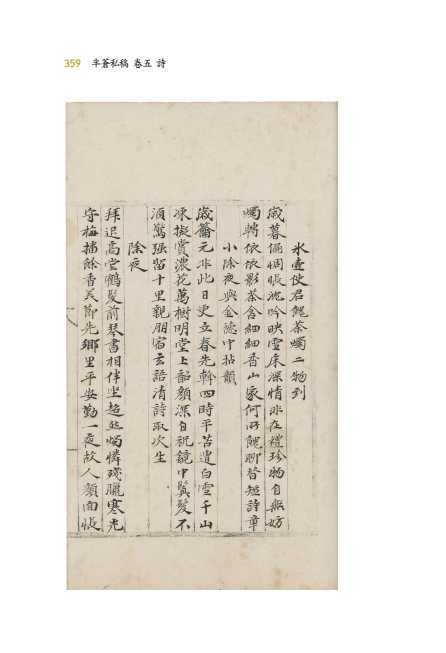 359 半蒼私稿 卷五 詩
氷壺使君餽茶燭二物到
歲暮偏惆悵沈吟映雪床深情非在禮珍物自無妨
燭轉依依影茶含細細香山家何所餽聊替短詩章
小除夜與金中拈韻
歲籥元非此日更立春先斡四時平苦遭白雪千山
凍擬賞濃花萬樹明堂上韶顏深自祝鏡中鬢髮不
須驚強留十里親朋宿玄語清詩取次生
除夜
拜退高堂鶴髮前琴書相伴坐超然燭憐殘臘寒光
守梅播餘香節先鄉里平安勤一夜故人顏面悵